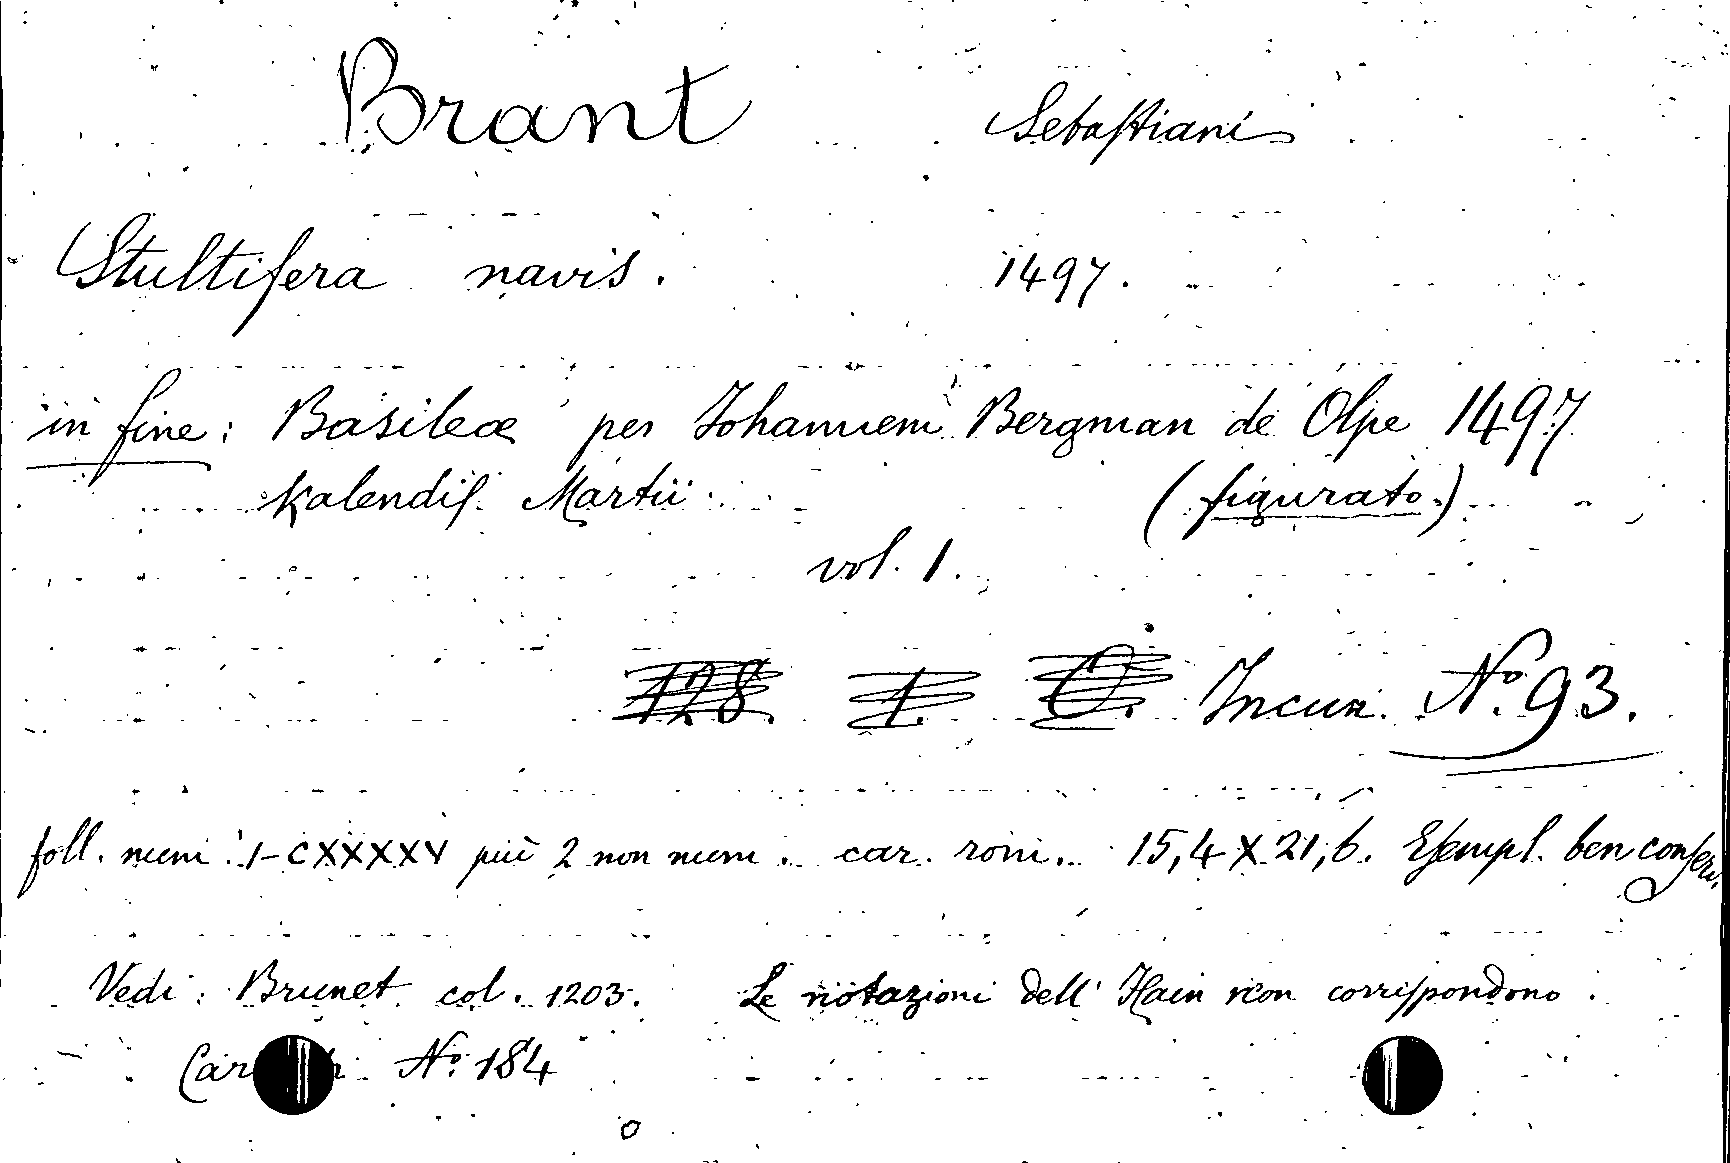 Brant Sebastiani
Stultifera navis. 1497.
in fine: Basileæ per Johannem Bergman de Olpe 1497
Kalendis Martii (figurato.)
vol. 1.
128 1. O. Incun. No. 93.
foll. num. 1-CXXXXV più 2 non num. car. rom. 15,4 X 21,6. Esempl. ben conserv.
Vedi: Brunet col. 1203. Le notazioni dell' Hain non corrispondono.
No. 184